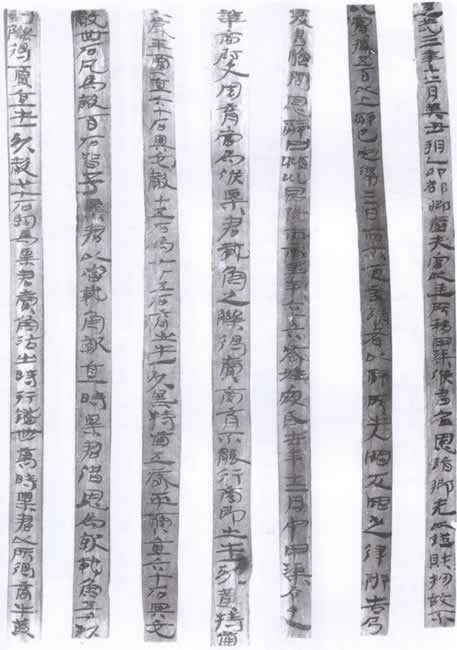 建武三年十二月癸丑朔乙卯都鄉嗇夫宮以廷所移甲渠候書召恩詣鄉先以證財物故不
以實臧五百以上辭已定滿三日而不更言請者以辭所出入罪反罪之律辨告乃
爰書驗問恩辭曰潁川昆陽市南里年六十六歲姓寇氏去年十二月中甲渠令史
華商尉史周育當為候粟君載魚之觻得賣商育不能行商即出牛一頭黃特齒
八歲平賈直六十石與交穀十五石為七十五石育出牛一頭黑特齒五歲平賈直六十石與交
穀卌石凡為穀百石皆予粟君以當載魚就直時粟君借恩為就載魚五千頭
到觻得賈直牛一頭穀廿七石約為粟君賣魚沽出時行錢卌萬時粟君以所得商牛黃